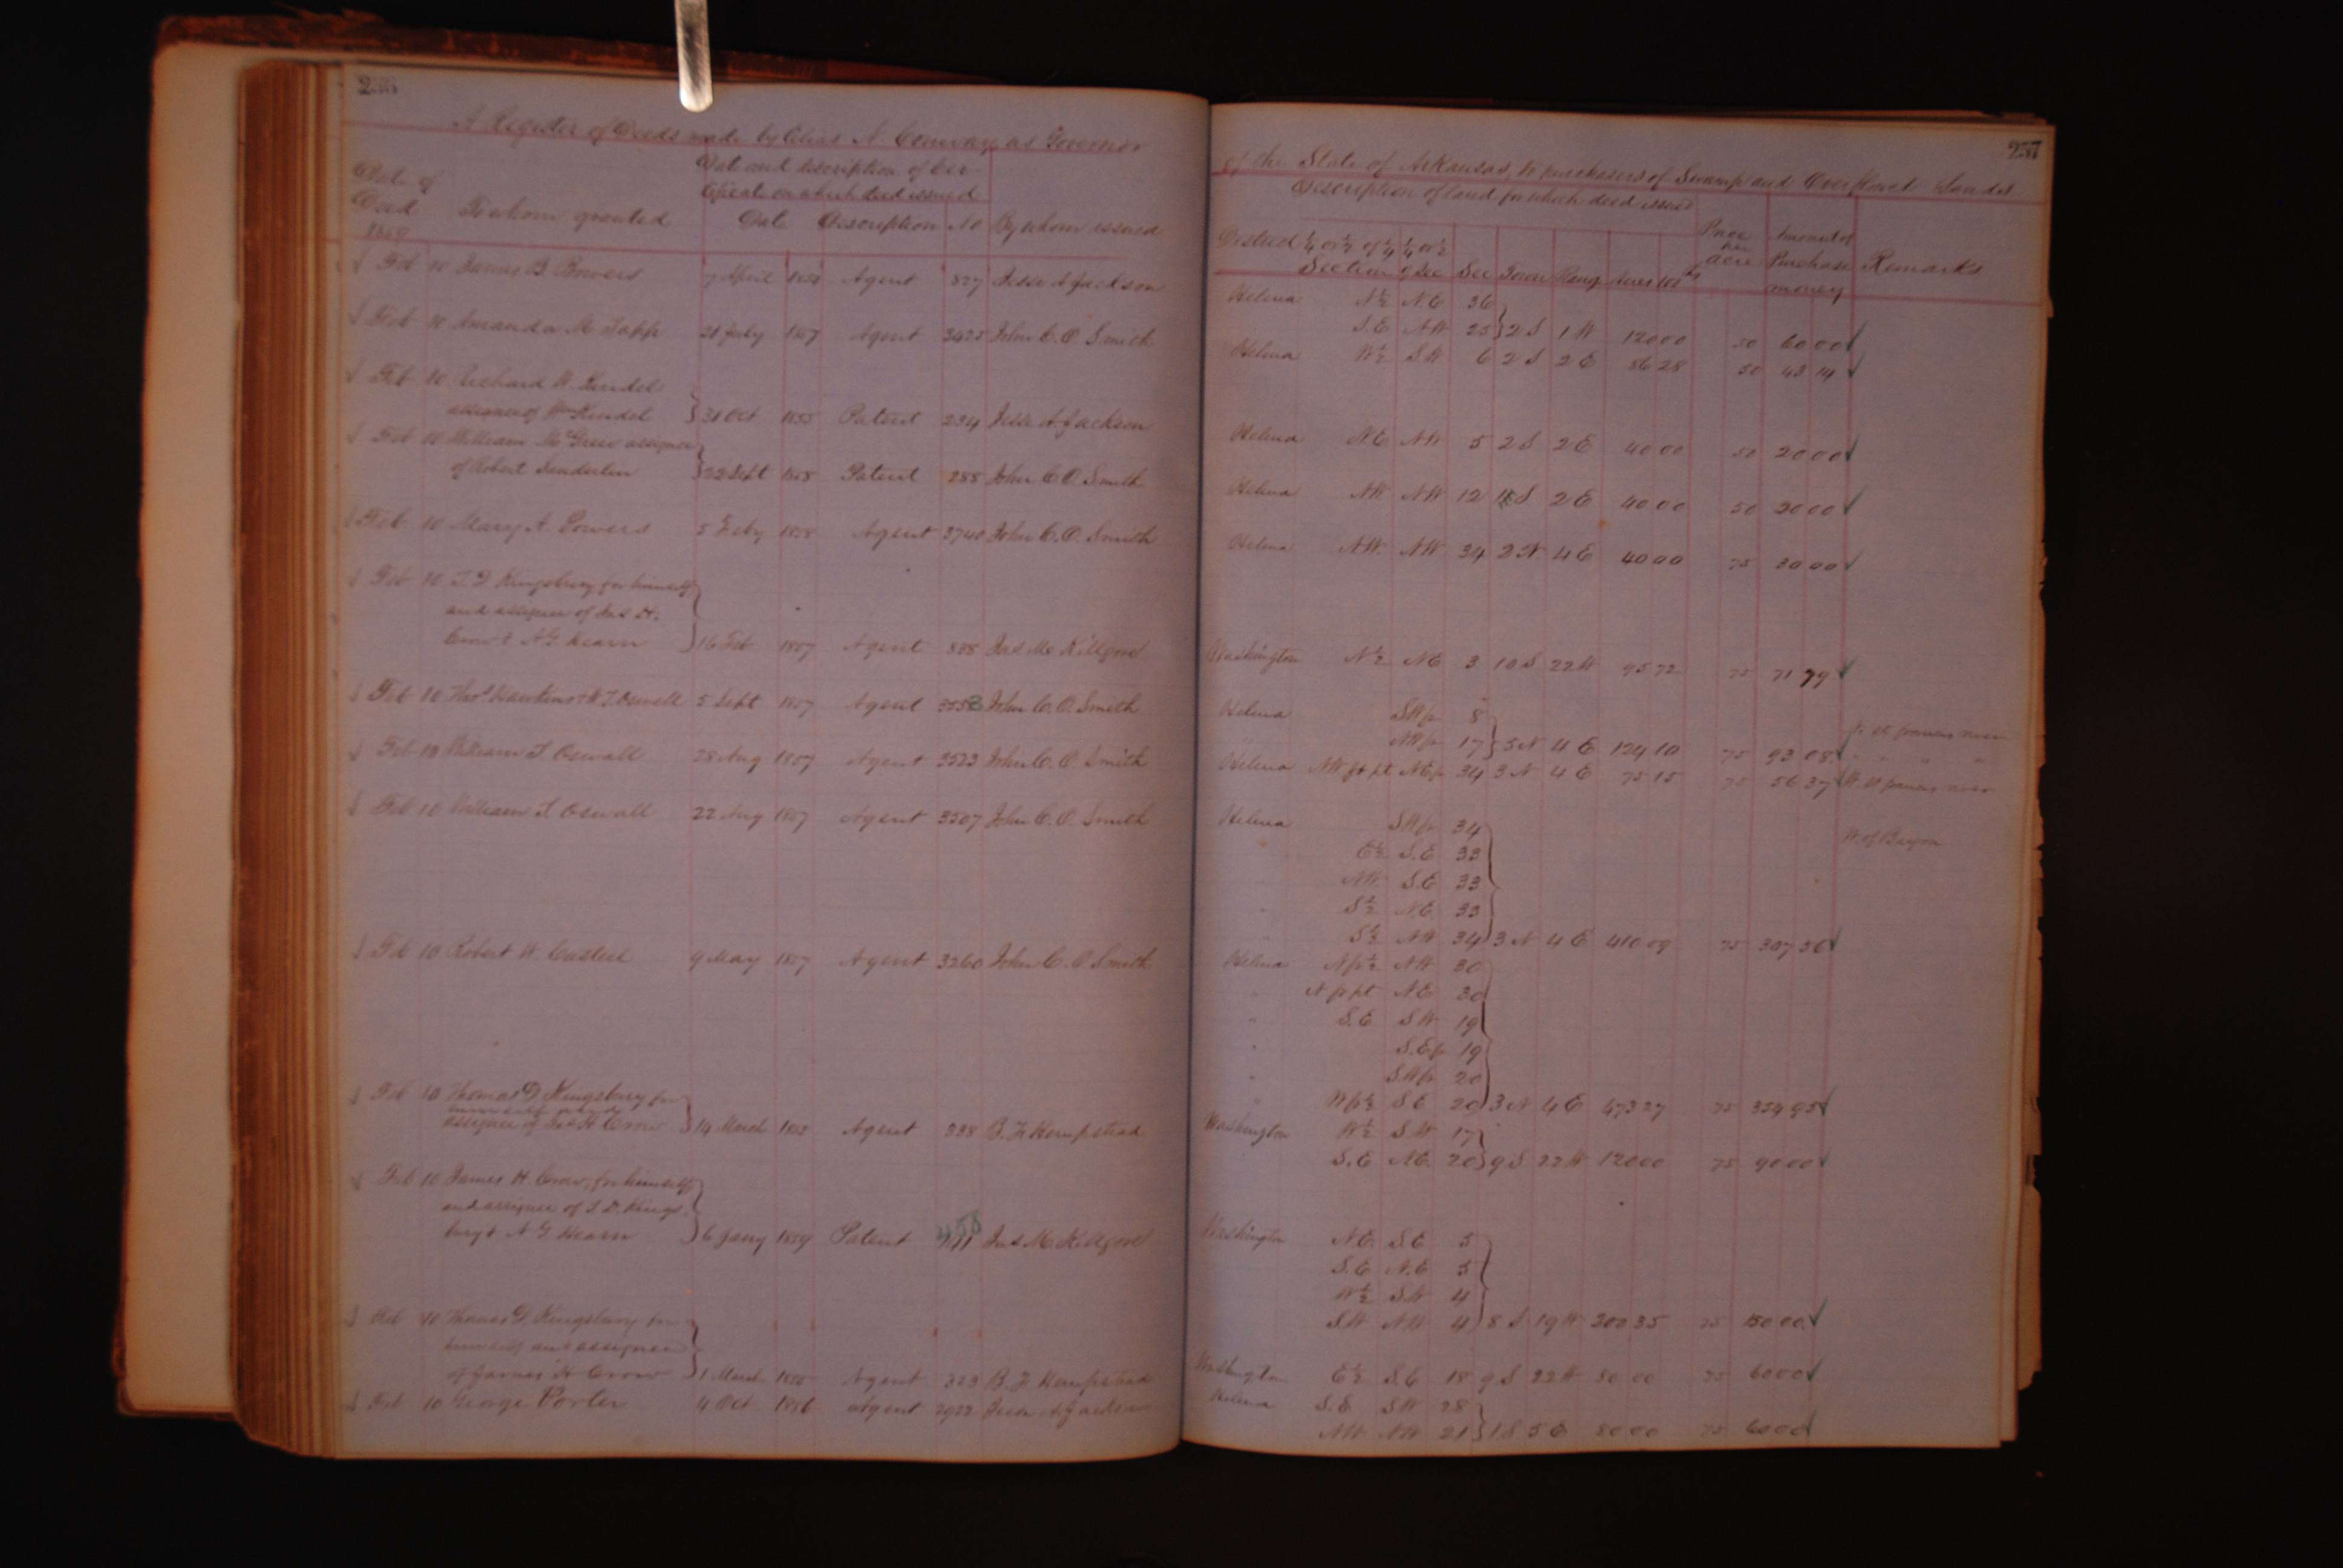 A Register of Deeds made by Elias N Conway as Governor
Date of Deed
To whom granted
Date and description of Cer-
tificate on which deed issued
Date Description No By whom issued
Feb 10 James B Bowers 7 April 1854 Agent 827 Jesse A Jackson
Feb 10 Amanda M Tapp 21 July 1857 Agent 3425 John C. O. Smith
Feb 10 Richard H. Kendel
assignee of Wm Kendel 31 Oct 1855 Patent 234 Jesse A Jackson
Feb 10 William McGrew assignee
of Robert Senderlin 22 Sept 1858 Patent 288 John C. O. Smith
Feb 10 Mary A. Sowers 5 Feby 1858 Agent 3740 John C. O. Smith
Feb 10 T. D. Kingsbury, for himself
and assignee of Jas H.
Crow & A G Hearn 16 Feb 1857 Agent 838 Jas M. Killgore
Feb 10 Thos Hawkins & W. T. Oswell 5 Sept 1857 Agent John C. O. Smith
Feb 10 William T. Oswall 28 Aug 1857 Agent 3523 John C. O. Smith
Feb 10 William T. Oswall 22 Aug 1857 Agent 3507 John C. O. Smith
Feb 10 Robert H. Casteel 9 May 1857 Agent 3260 John C. O. Smith
Feb 10 Thomas D Kingsbury for
himself and
assignee of Jas H Crow 14 March Agent 338 B. F. Hempstead
Feb 10 James H. Crow, for himself
and assignee of T. D. Kings-
bury & A G. Hearn 6 Jany 1859 Patent 458 Jas M. Killgore
Feb 10 Thomas D. Kingsbury for
himself and assignee
of James H Crow 1 March Agent 323 B. F. Hempstead
Feb 10 George Porter 4 Oct 1856 Agent 2922 Jesse A Jackson
257
of the State of Arkansas, to purchasers of Swamp and Overflowed Lands
Description of land for which deed issued
District ¼ or ½ of ¼ Section ¼ or ½ of Sec Sec Town Rang Acres 100ths Price per acre Amount of Purchase money Remarks
Helena N½ N.E 36
S.E NW 25 } 2 S 1 W 120 00 50 60 00 ✓
Helena W½ SW 6 2 S 2 E 86 28 50 43 14 ✓
Helena N.E NW 5 2 S 2 E 40 00 50 20 00 ✓
Helena NW NW 12 S 2 E 40 00 50 20 00 ✓
Helena NW. NW 34 2 N 4 E 40 00 75 30 00 ✓
Washington N½ NE 3 10 S 22 W 95 72 75 71 79 ✓
Helena SW fr 8 fr. St francis river
NW fr 17 } 3 N 4 E 124 10 75 93 08 ✓ " " "
Helena NW fr pt NE fr 34 3 N 4 E 75 15 75 56 37 ✓ W. St francis river
Helena SW fr 34 W. of Bayou
E½ S.E 33
NW. S.E 33
S½ N.E. 33
S½ NW 34 } 3 N 4 E 410 09 75 307 56 ✓
Helena N fr ½ NW 30
N fr pt NE 30
S.E SW 19
S.E fr 19
SW fr 20
W fr ½ S E 20 } 3 N 4 E 473 27 75 354 95 ✓
Washington W½ SW 17
S.E NE. 20 } 9 S 22 W 120 00 75 90 00 ✓
Washington N.E. S.E 5
S.E N.E 5
W½ SW 4
SW NW 4 } 8 S 19 W 200 35 75 150 00 ✓
Washington E½ S.E 18 9 S 22 W 80 00 75 60 00 ✓
Helena S.E SW 28
NW NW 21 } 1 S 5 E 80 00 75 60 00 ✓